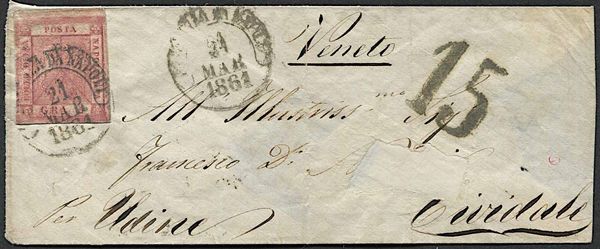 POSTA
NAPOLI
GRANA
21
MAR
1861
21
MAR
1861
Veneto
15
All' Illustriss.mo Sig.r
Francesco Dr. A
Per Udine
Cividale